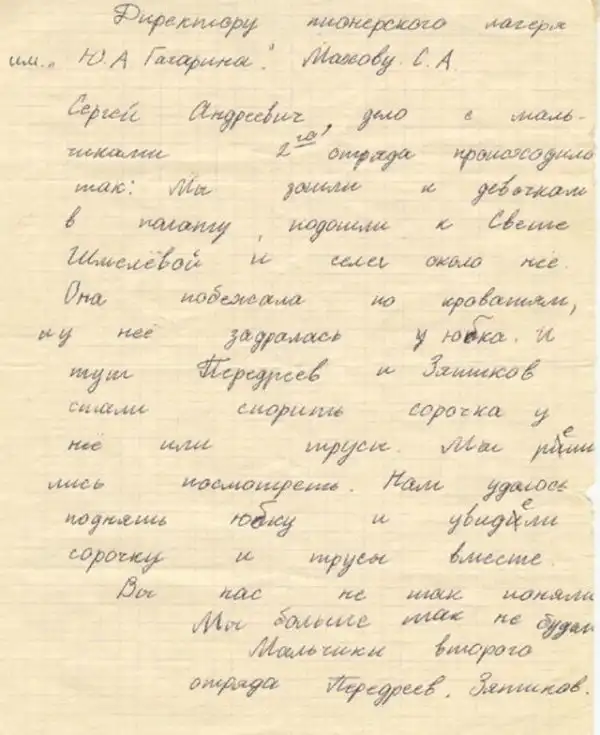 Директору пионерского лагеря
им. „Ю.А Гагарина". Махову С.А.
Сергей Андреевич, дело с маль-
чиками 2го отряда происходило
так: Мы зашли к девочкам
в палату, подошли к Свете
Шмелёвой и сели около неё.
Она побежала по кроватям,
и у неё задралась у юбка. И
тут Передреев и Зятиков
стали спорить сорочка у
неё или трусы. Мы реши
лись посмотреть. Нам удалось
поднять юбку и увидели
сорочку и трусы вместе.
Вы нас не так поняли
Мы больше так не будем
Мальчики второго
отряда Передреев, Зятиков.